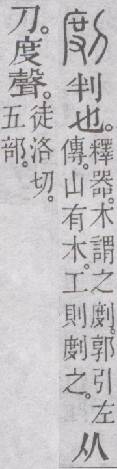 剫判也。釋器。木謂之剫。郭引左傳。山有木。工則剫之。从
刀。度聲。徒洛切。五部。